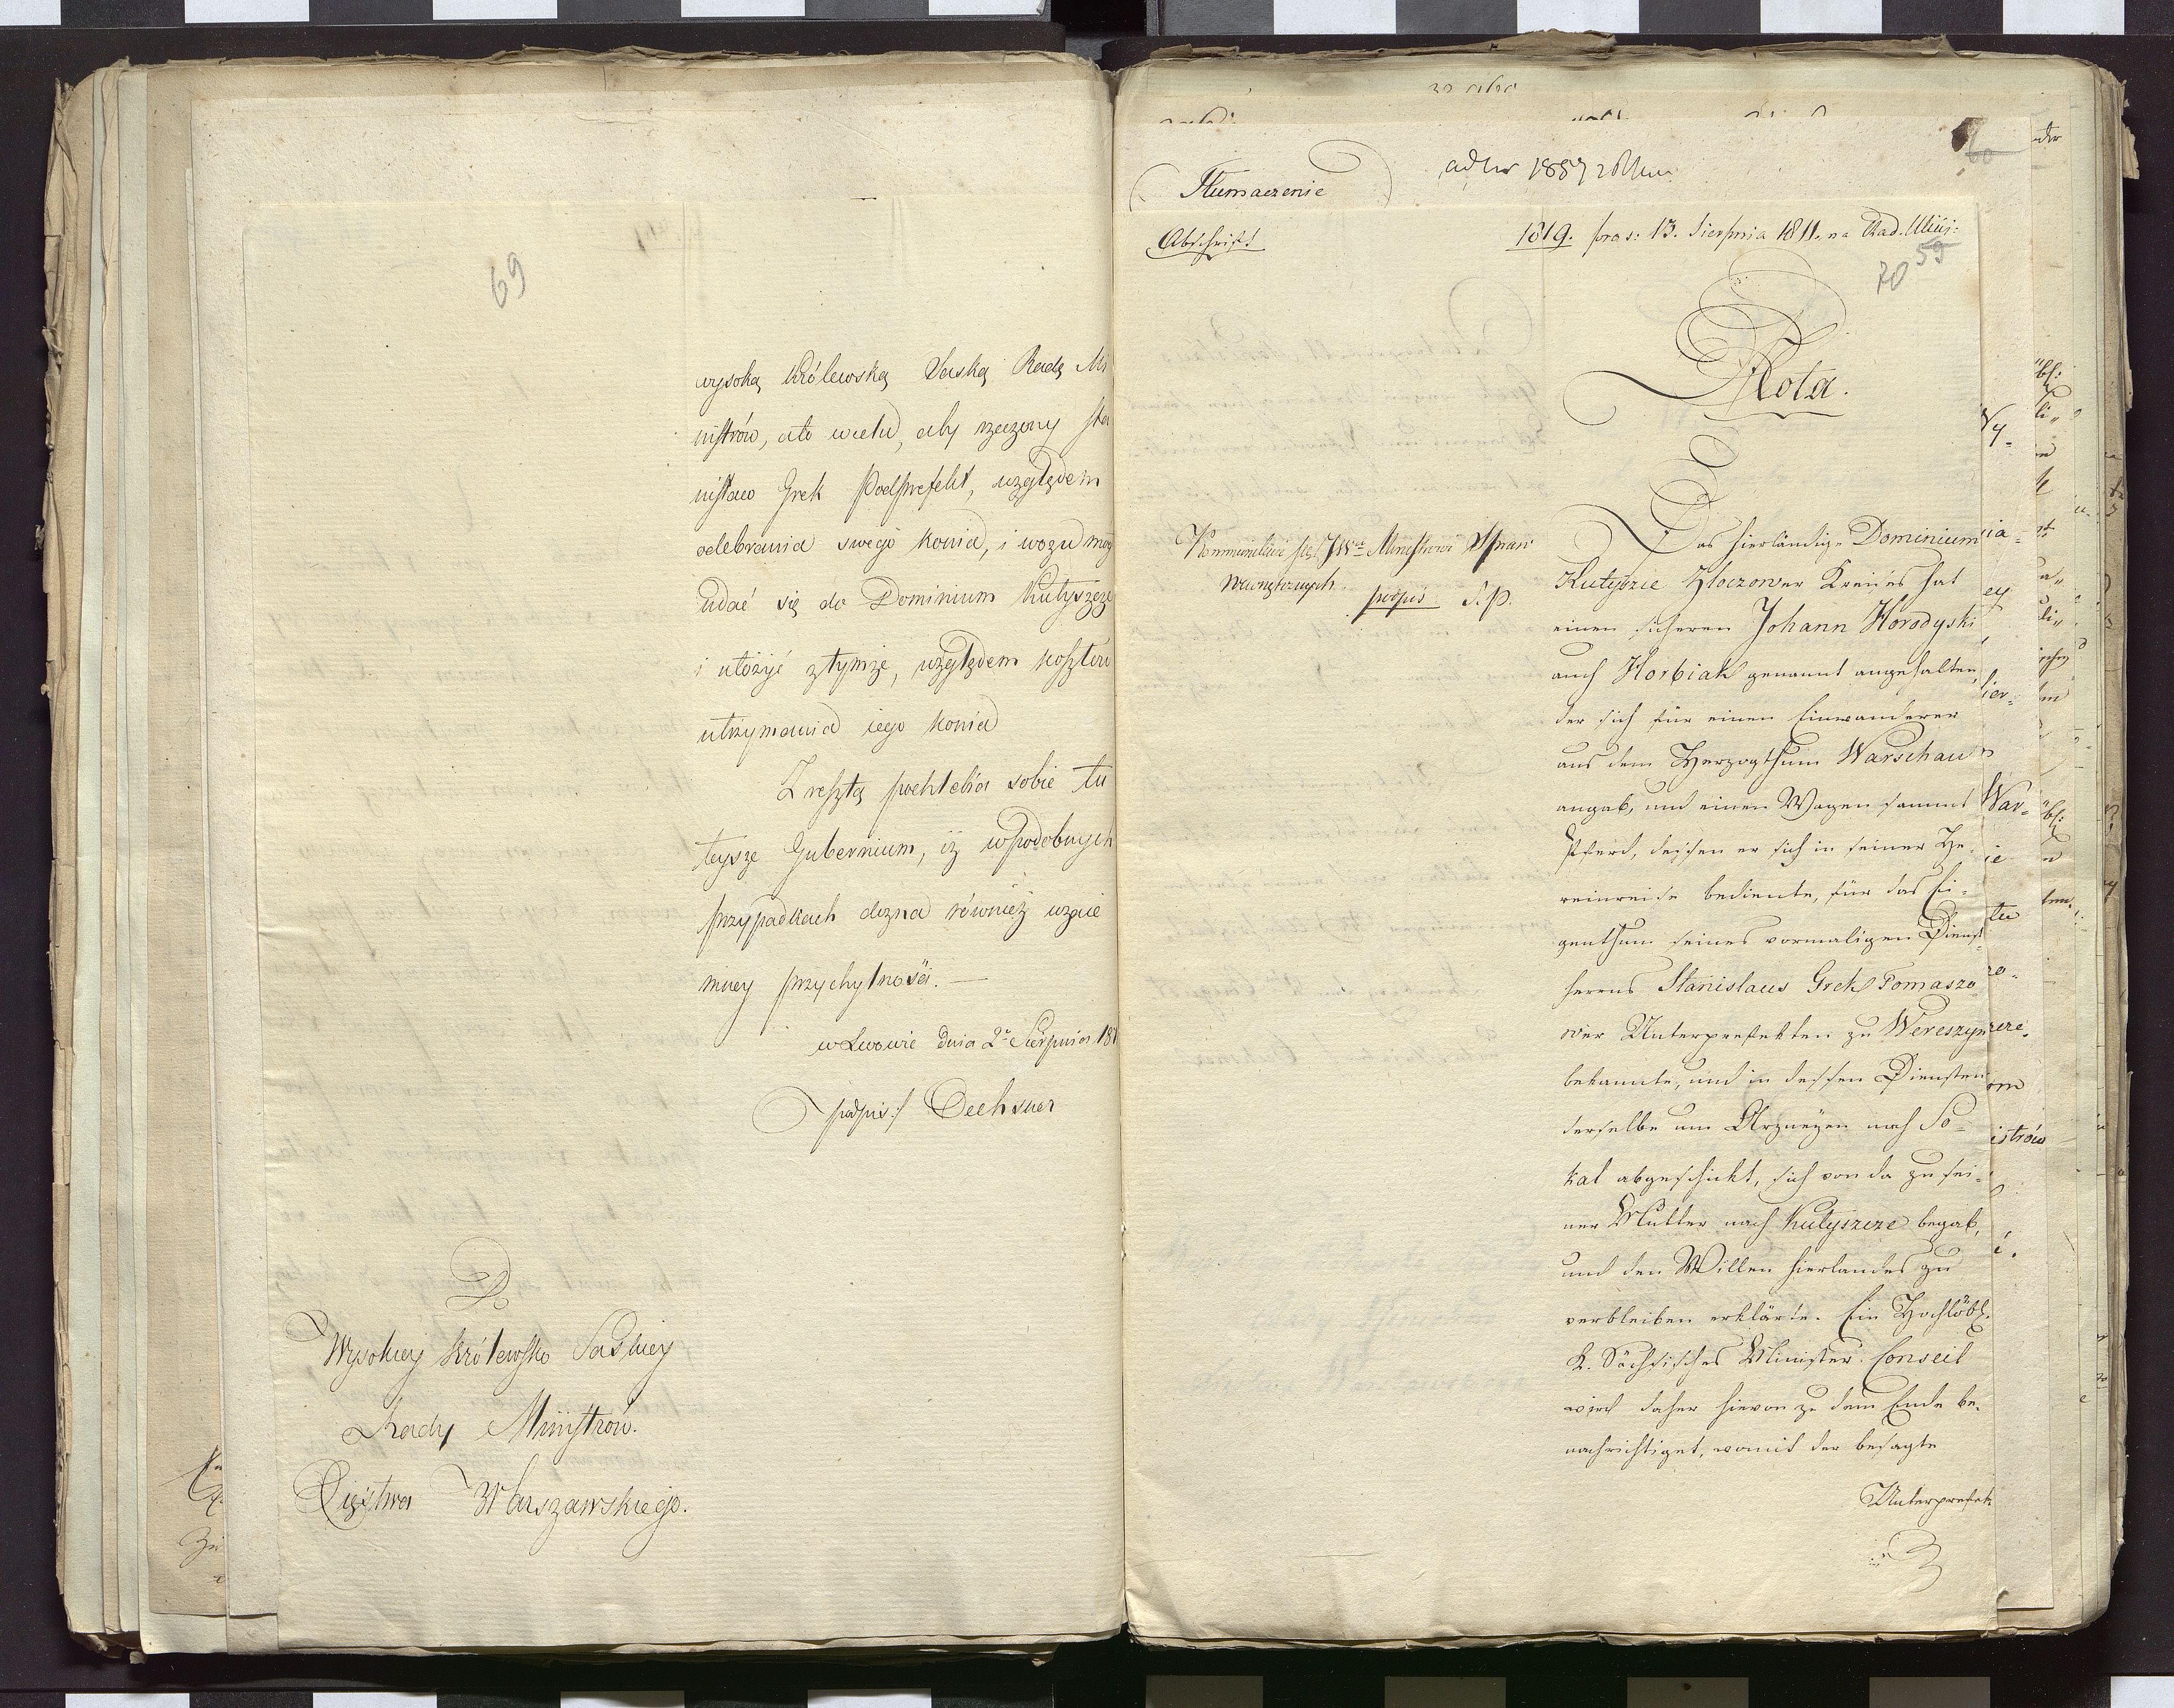 69
wysoką Królewską Saską Radę Mi
nistrów, a to w celu, aby rzeczony Sta
nisław Grek Podprefekt, względem
odebrania swego konia, i wozu mog
udać się do Dominium Kutyszcze
i ułożyć z tymże, względem kosztów
utrzymania iego konia
Zresztą pochlebia sobie tu
teysze Gubernium, iż w podobnych
przypadkach dozna równieź wzaie
mney przychylności. —
w Lwowie dnia 2o Sierpnia 181
podpis:/ Oechsner
Do
Wysokiey Królewsko Saskiey
Rady Ministrów
Xięstwa Warszawskiego.
Tłumaczenie
60
Abschrift
1819. pras: 13. Sierpnia 1811. na Rad. Minis:
70 59
Nota.
Kommunikuie się JWu Ministrowi Spraw
Wewnętrznych.
podpis S. P.
Das hierländige Dominium
Kutyszie Złoczower Kreises hat
einen sicheren Johann Horodyski
auch Horbiak genannt angehalten,
der sich für einen Einwanderer
aus dem Herzogthum Warschau
angab, und einen Wagen sammt
Pferd, dessen er sich in seiner He-
reinreise bediente, für das Ei-
genthum seines vormaligen Dienst-
herrns Stanislaus Grek Tomaszo
wer Unterprefekten zu Wereszyn
bekannte, und in dessen Diensten
derselbe um Arzneyen nach So-
kal abgeschickt, sich von da zu sei-
ner Mutter nach Kutyszcze begab,
und den Willen hierlandes zu
verbleiben erklärte. Ein Hochlöbl.
K. Sächsisches Minister Conseil
wird daher hievon zu dem Ende be-
nachrichtiget, womit der besagte
Unterprefek